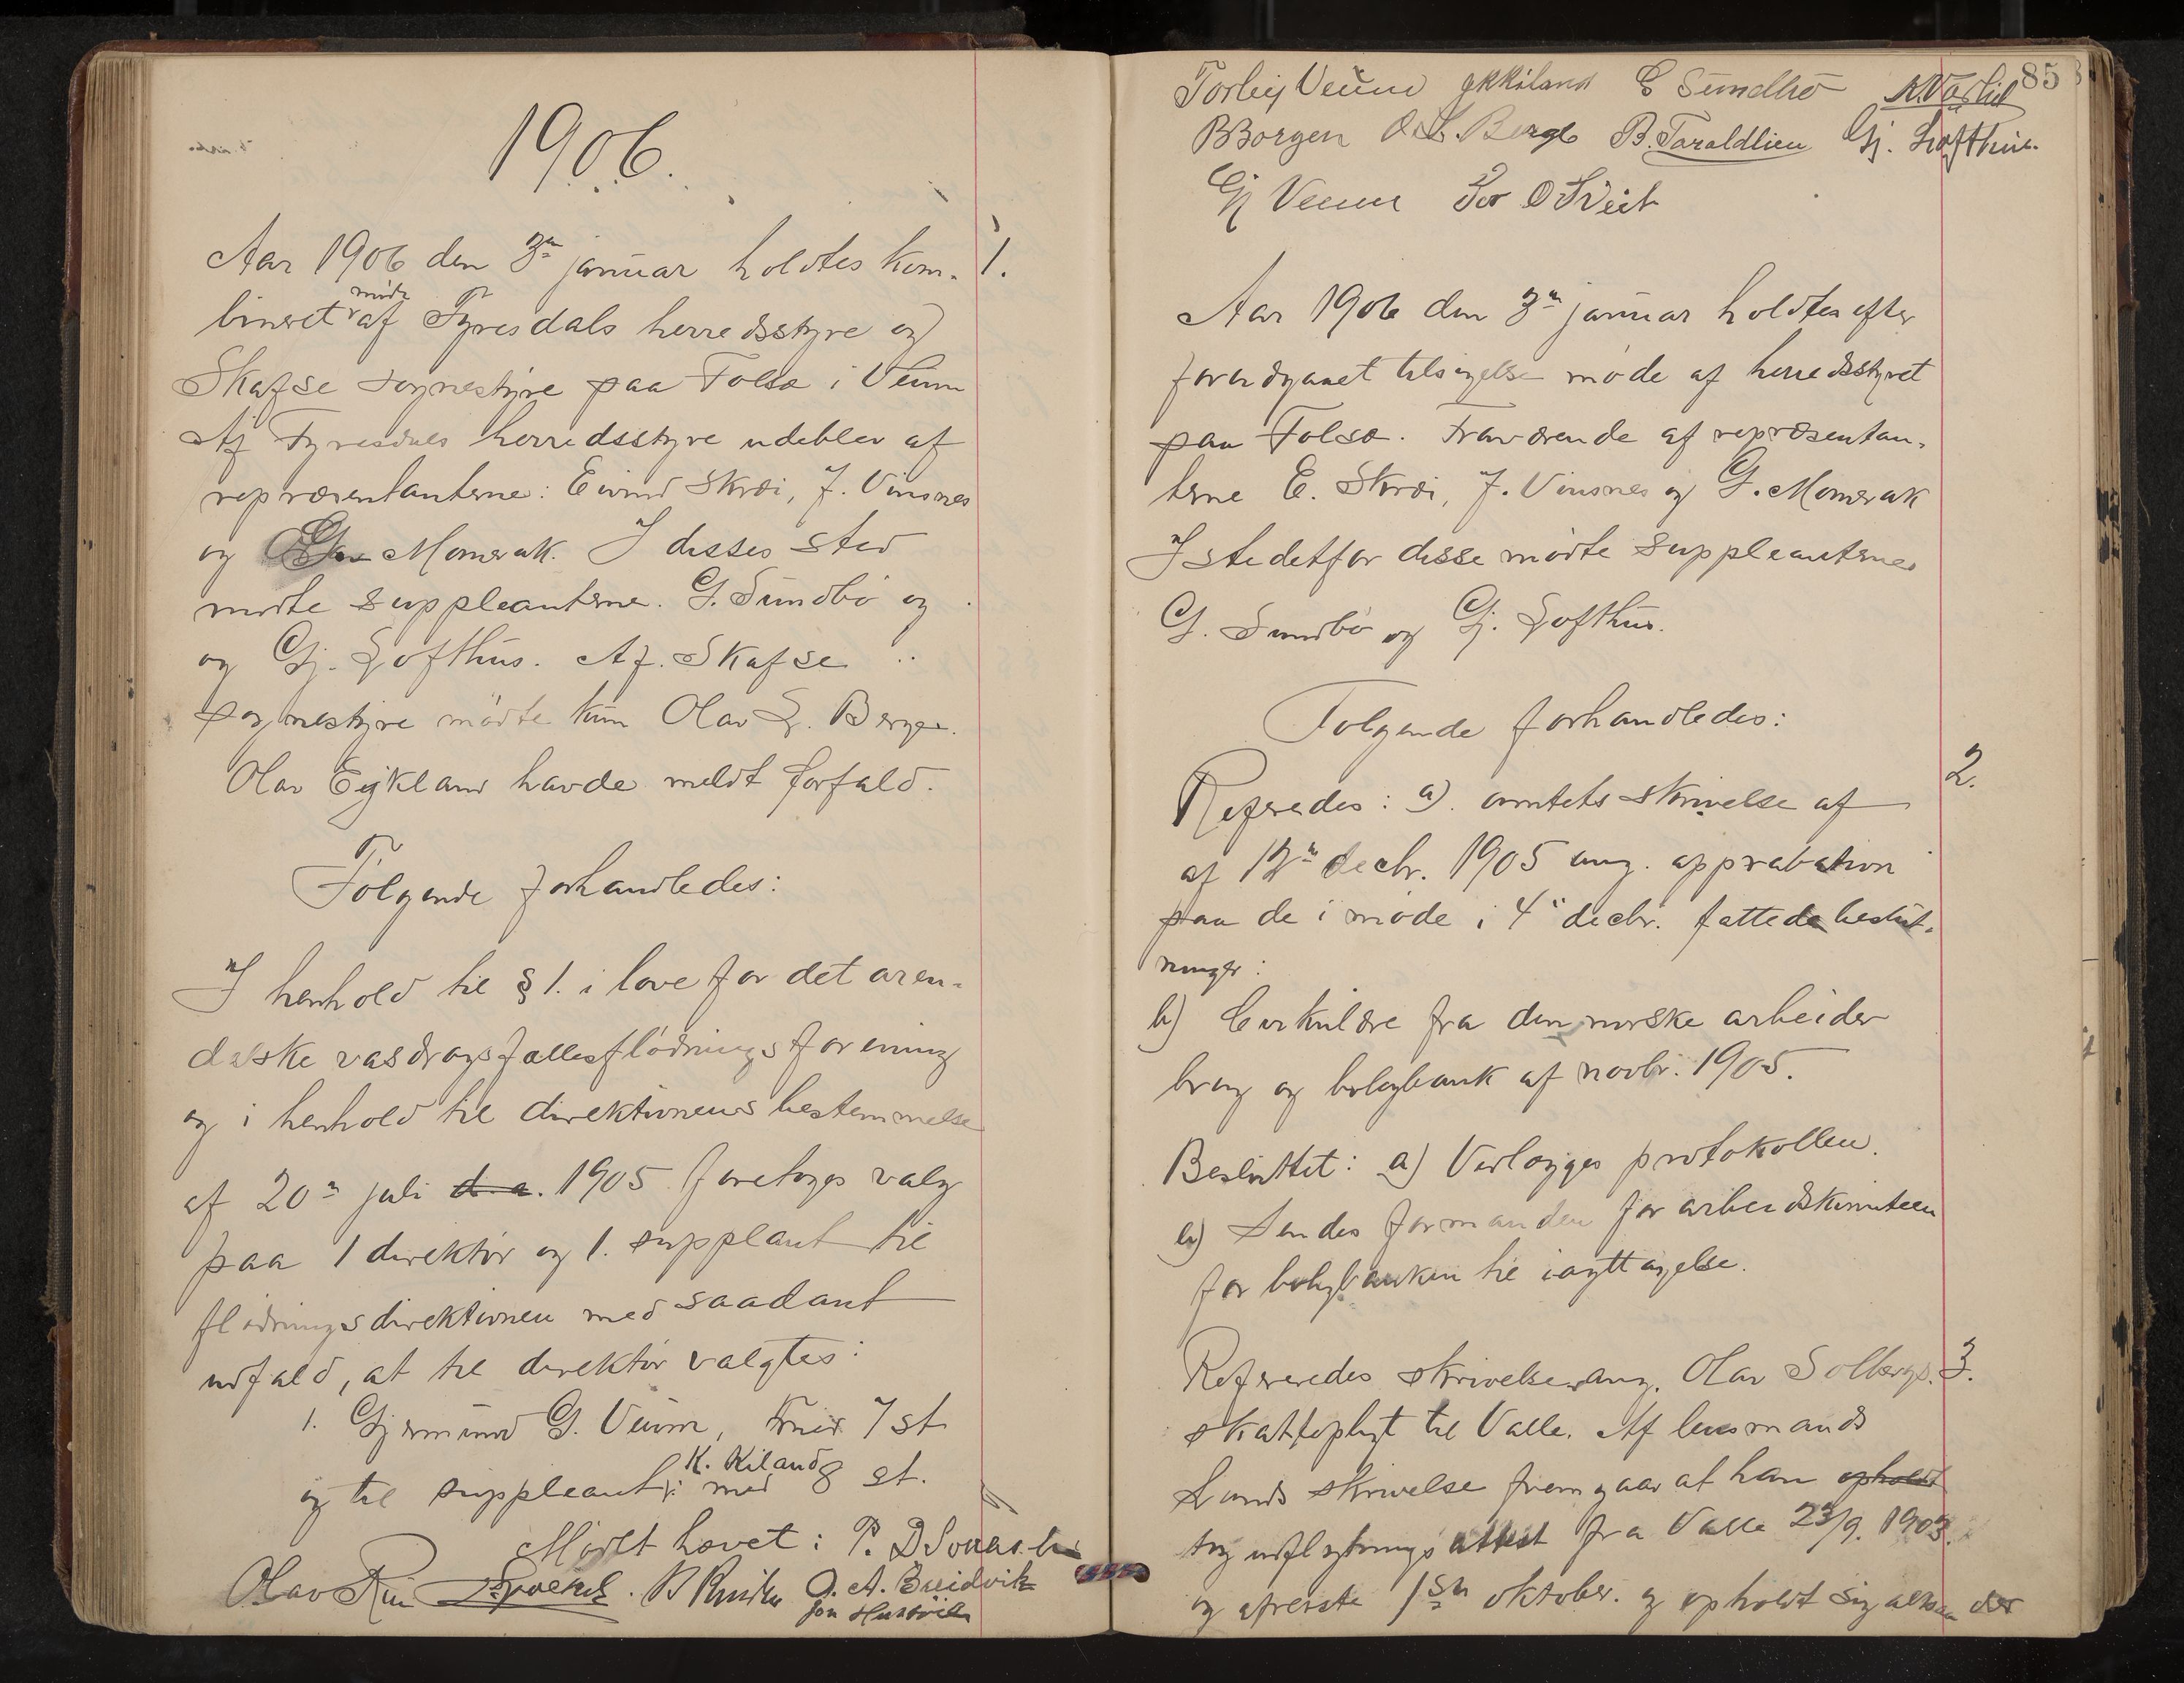 1906.
Aar 1906 den 3ᵈᵉ januar holdtes kom- 1.
bineret møde af Tyresdals herredsstyre og
Skafse sognestyre paa Folsæ i Veum
Af Tyresdals herredsstyre udeblev af
repræsentanterne: Eivind Skræi, J. Vinsnes
og Momrak. I disses sted
mødte suppleanterne. G. Sundbø og
og Gj. Lofthus. Af Skafse
sognestyre mødte kun Olav L. Berge.
Olav Eykland havde meldt forfald.
Følgende forhandledes:
I henhold til § 1. i love for det aren-
dalske vasdragsfællesflødningsforening
og i henhold til direktionens bestemmelse
af 20ⁿ juli d. a. 1905 foretoges valg
paa 1 direktør og 1. suppleant til
flødningsdirektionen med saadant
udfald, at til direktør valgtes:
1. Gjermund G. Veum, 7 st
og til suppleant: K. Kiland med 8 st.
Mødet hævet: P.
Olav O. A. Breidvik
Jon
85
Torleif Veum G Sundbø K. Vorlid
B Borgen O. L. Berge B. Taraldlien Gj. Lofthus.
Gj Veum Tor O Tveit
Aar 1906 den 3ᵈᵉ januar holdtes efter
forudgaaet tilsigelse møde af herredsstyret
paa Folsæ. Fraværende af repræsentan-
terne E. Skræi, J. Vinsnes og G. Momrak
Istedetfor disse mødte suppleanterne
G. Sundbø og Gj. Lofthus.
Følgende forhandledes:
2.
Refereredes: a). amtets skrivelse af
af 12ᵗᵉ decbr. 1905 ang. approbation
paa de i møde i 4ᵈᵉ decbr. fattede beslut-
ninger:
b) Cirkulære fra den norske arbeider
brug og boligbank af novbr. 1905.
Besluttet: a) Vedlægges protokollen.
b) Sendes formanden for arbeidskomiteen
for boligbanken til iagttagelse.
Refereredes skrivelse ang. Olav Solbergs 3.
skattepligt til Valle. Af lensmands
Lunds skrivelse fremgaar at han opholdt
tog udflytningsattest fra Valle 23/9. 1903.
og afreiste 1ˢᵗᵉ oktober. og opholdt sig altsaa der